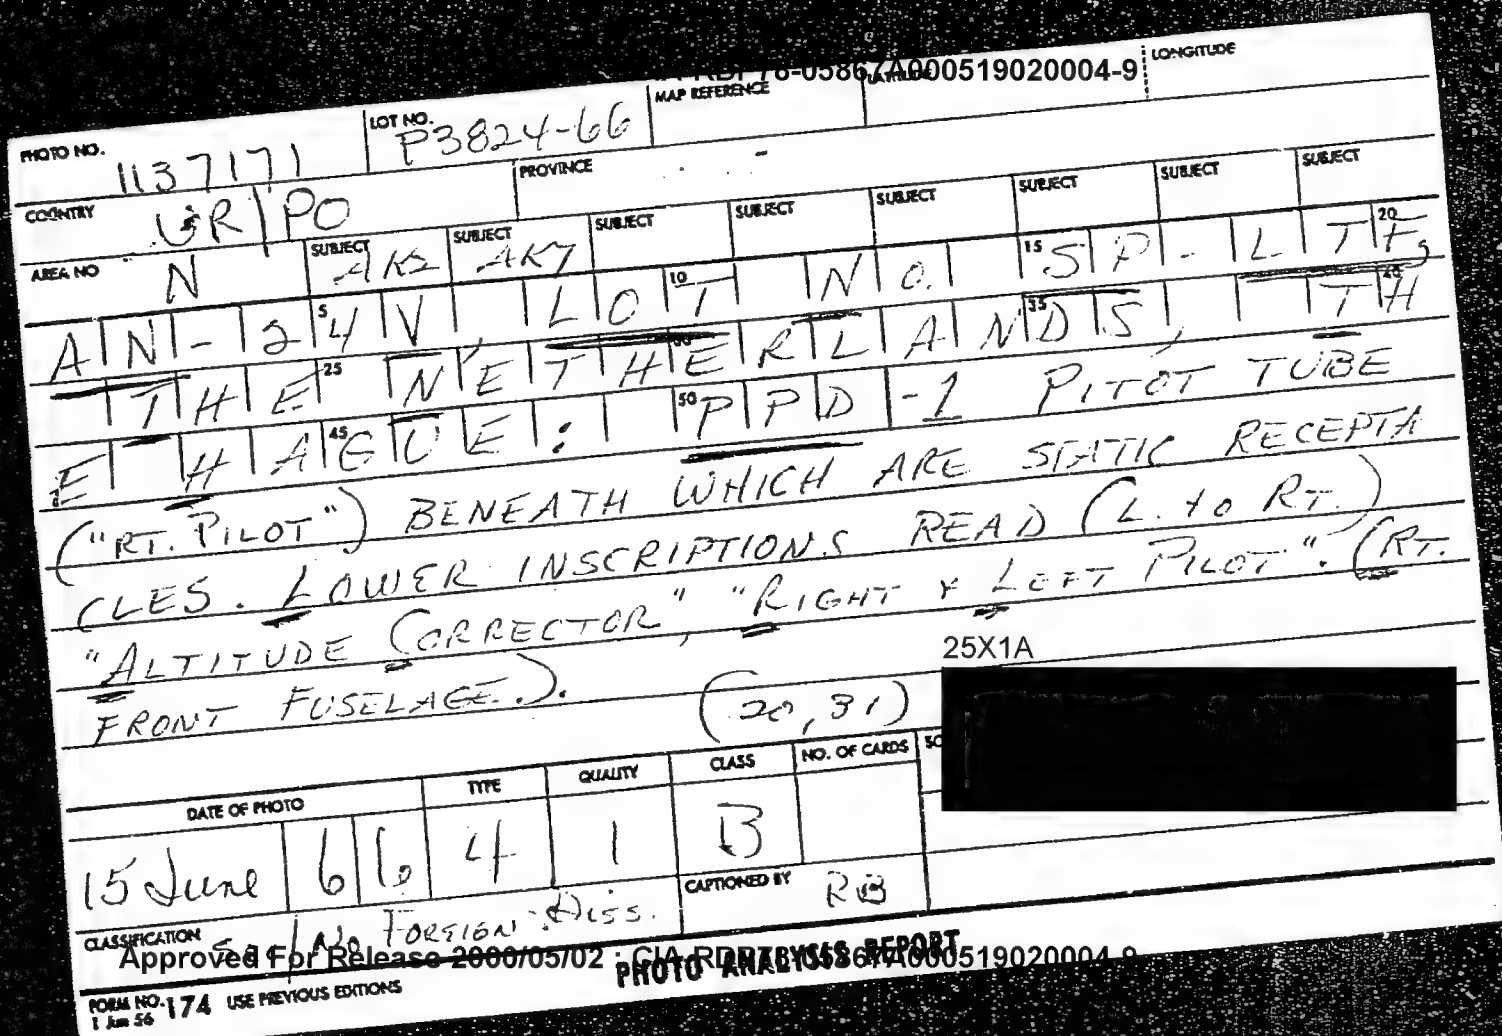 RDP78-05867A000519020004-9
LONGITUDE
PHOTO NO. 1137171
LOT NO. P3824-66
MAP REFERENCE
COUNTRY UR/PO
PROVINCE
AREA NO N
SUBJECT AKS
SUBJECT AKY
SUBJECT
SUBJECT
SUBJECT
SUBJECT
SUBJECT
SUBJECT
AN-24V LOT NO. SP-LTF,
THE NETHERLANDS, TH
E HAGUE: PPD-1 PITOT TUBE
("RT. PILOT") BENEATH WHICH ARE STATIC RECEPTA
CLES. LOWER INSCRIPTIONS READ (L. to RT.)
"ALTITUDE CORRECTOR", "RIGHT & LEFT PILOT". (RT.
FRONT FUSELAGE.).
(20,31)
25X1A
DATE OF PHOTO 15 June 66
TYPE 4
QUALITY 1
CLASS B
NO. OF CARDS
CAPTIONED BY RB
CLASSIFICATION No FOREIGN Diss.
Approved For Release 2000/05/02 : CIA-RDP78-05867A000519020004-9
PHOTO ANALYSIS REPORT
FORM NO. 174 USE PREVIOUS EDITIONS
1 Jun 56